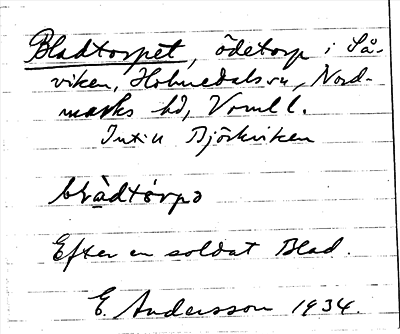 Bladtorpet, ödetorp i Så-
viken, Holmedals sn, Nord-
marks hd, Vrml l.
Intill Björkviken
blàdtórpə
Efter en soldat Blad.
E. Andersson 1934.